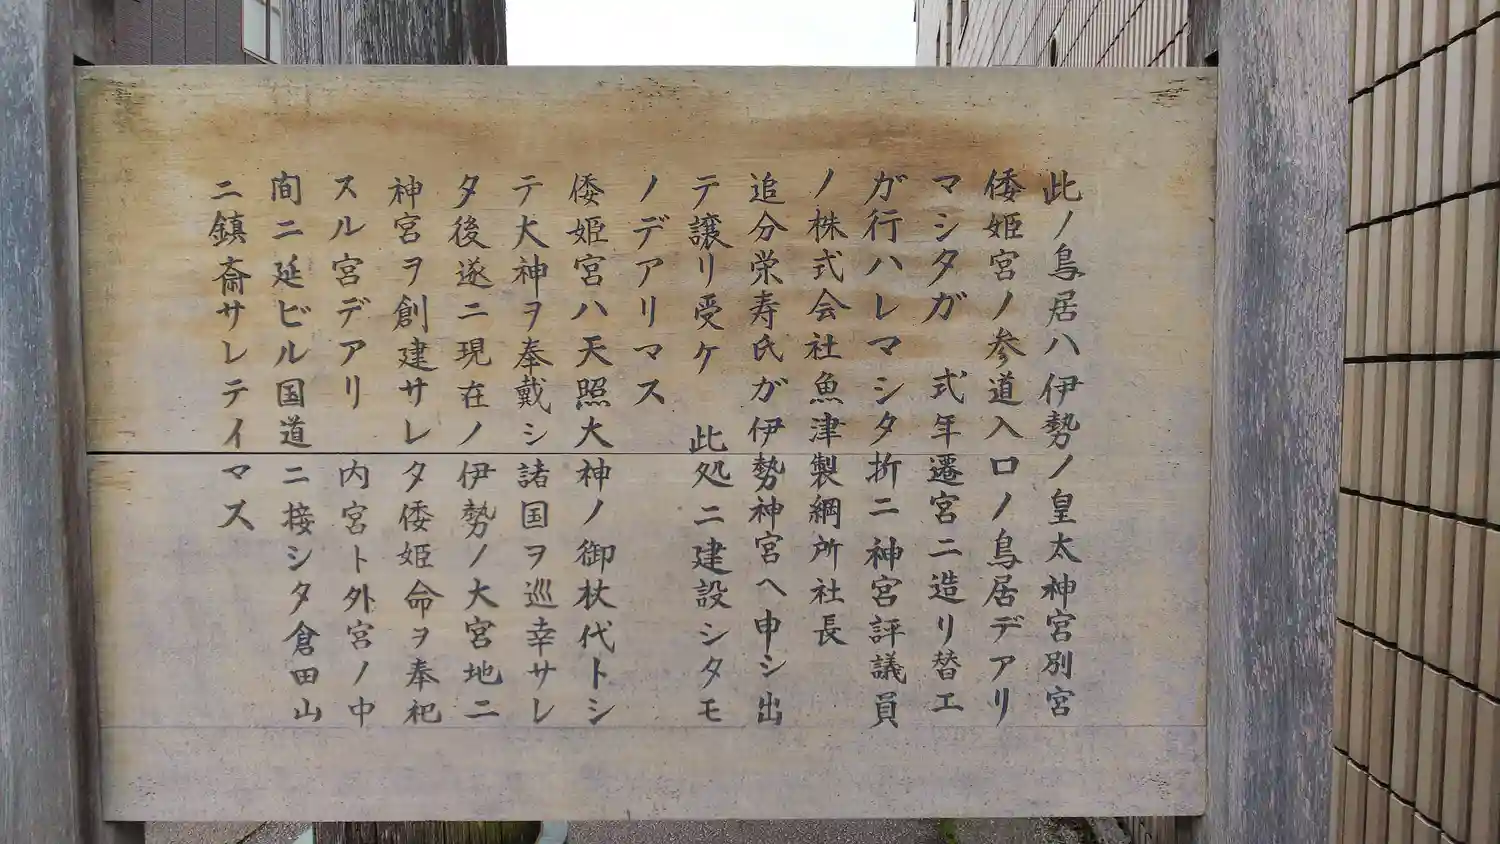 此ノ鳥居ハ伊勢ノ皇太神宮別宮
倭姫宮ノ参道入口ノ鳥居デアリ
マシタガ 式年遷宮ニ造リ替エ
ガ行ハレマシタ折ニ神宮評議員
ノ株式会社魚津製綱所社長
追分栄寿氏ガ伊勢神宮ヘ申シ出
テ譲リ受ケ 此処ニ建設シタモ
ノデアリマス
倭姫宮ハ天照大神ノ御杖代トシ
テ大神ヲ奉戴シ諸国ヲ巡幸サレ
タ後遂ニ現在ノ伊勢ノ大宮地ニ
神宮ヲ創建サレタ倭姫命ヲ奉祀
スル宮デアリ 内宮ト外宮ノ中
間ニ延ビル国道ニ接シタ倉田山
ニ鎮斎サレテイマス